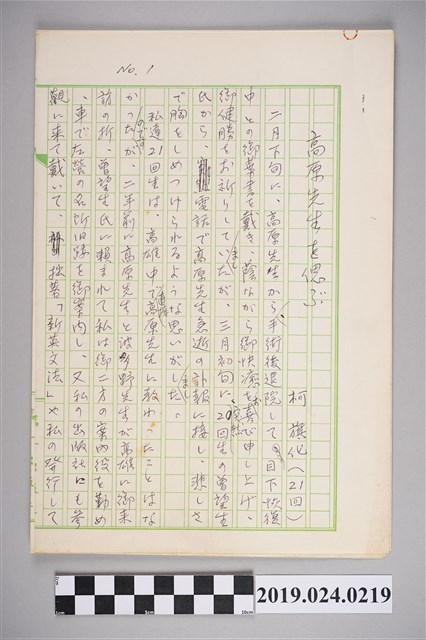 No. 1
高原先生を偲ぶ
柯旗化(21回)
二月下旬に、高原先生から手術後退院して目下恢復
中との御葉書を戴き、蔭ながら御快癒をお喜び申し上げ、
御健勝をお祈りしていましたが、三月初旬に20回生の曾望生
氏から、電話で高原先生急逝の訃報に接し、悲しさ
で胸をしめつけられるような思いがしました。
私達21回生は、高雄中で高原先生に教わったことはな
かったが、二年前に高原先生と波多野先生が高雄に御来
訪の折、曾望生氏に頼まれて私は御二方の案内役を勤め
、車で左営の名所旧跡を御案内し、又私の出版社にも参
観に来て戴いて、拙著「新英文法」や私の発行して
2019.024.0219
0cm
5cm
10cm